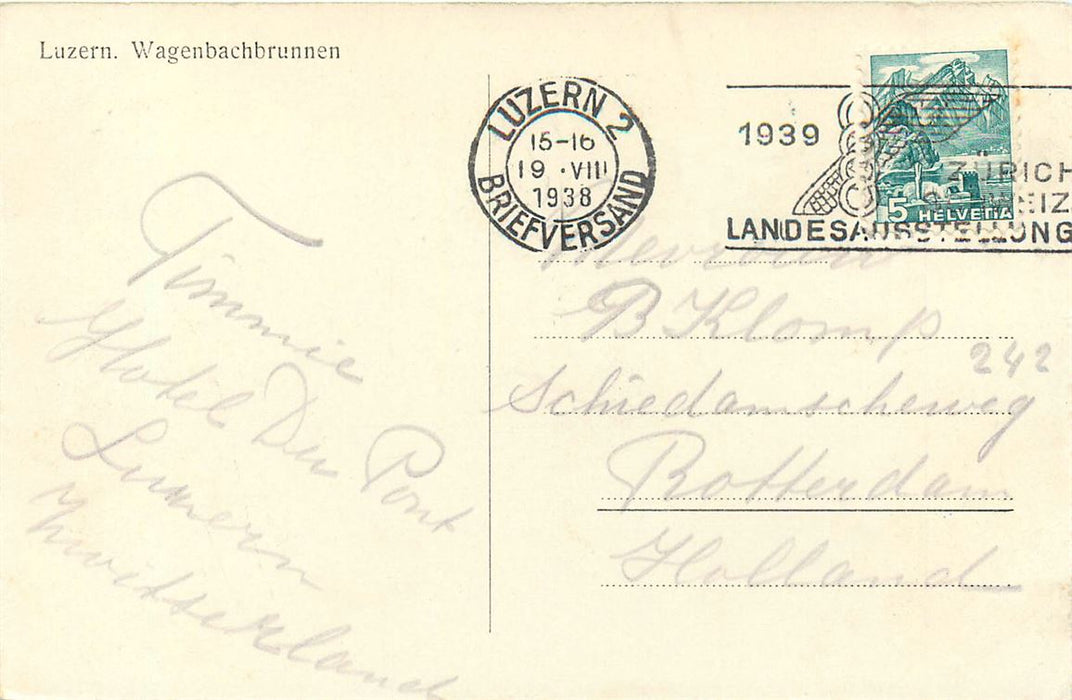 Luzern. Wagenbachbrunnen
LUZERN 2
15-16
19 · VIII
1938
BRIEFVERSAND
1939
ZÜRICH
LANDESAUSSTELLUNG
5 HELVETIA
Timmie
Hotel Du Pont
Luzern
Zwitserland
Mevrouw
B Klomp
242
Schiedamscheweg
Rotterdam
Holland